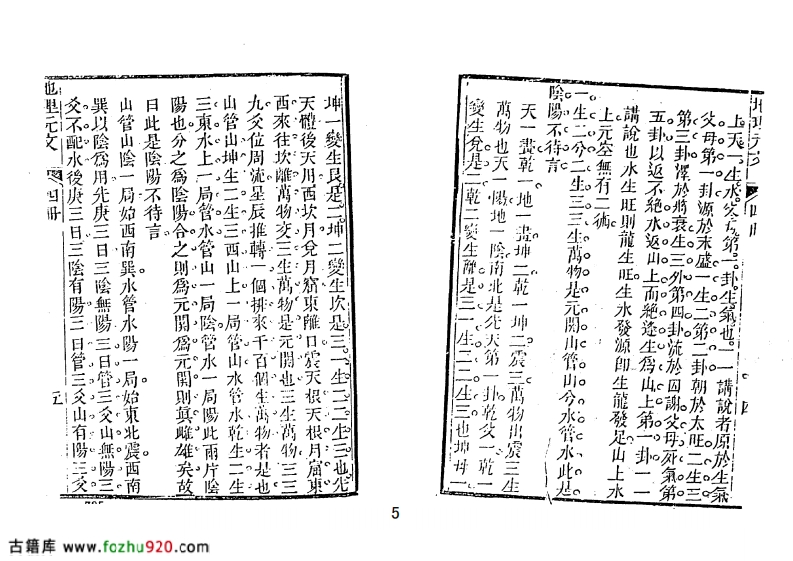 上天一生水
父母第一卦源於末盛一生二第二卦朝於太旺二生三
第三卦澤於將衰生三外第四卦流於囚謝父母死氣第
五卦以返不絶水返山上而絶逢生爲山上第一卦一一
講說也水生旺則龍生旺生水發源即生龍發足山上水
上元空無有二術
一生二兮二生三三生萬物是元關山管山兮水管水此是
陰陽不待言
天一畫乾一地一畫坤二乾一坤二震三萬物出震三生
萬物也天一陽地一陰南北是先天第一卦乾父一乾一
變生兌是二乾二變生離是三一生二二生三也坤母一
地理元文
四冊
坤一變生艮是二坤二變生坎是三一生二二生三也先
天體後天用西坎月兌月窟東離口震天根天根月窟東
西來往坎離萬物交三生萬物是元關也三生萬物三三
九爻位周流星辰推轉一個排來千百個生萬物者是也
山管山坤生二生三西山上一局管山水管水乾生二生
三東水上一局管水管山一局陰管水一局陽此兩片陰
陽也分之爲陰陽合之則爲元關爲元關則眞雌雄矣故
曰此是陰陽不待言
山管山陰一局始西南巽水管水陽一局始東北震西南
巽以陰爲用先庚三日三陰無陽三日管三爻山無陽三
爻不配水後庚三日三陰有陽三日管三爻山有陽三爻
5
古籍库 www.fozhu920.com